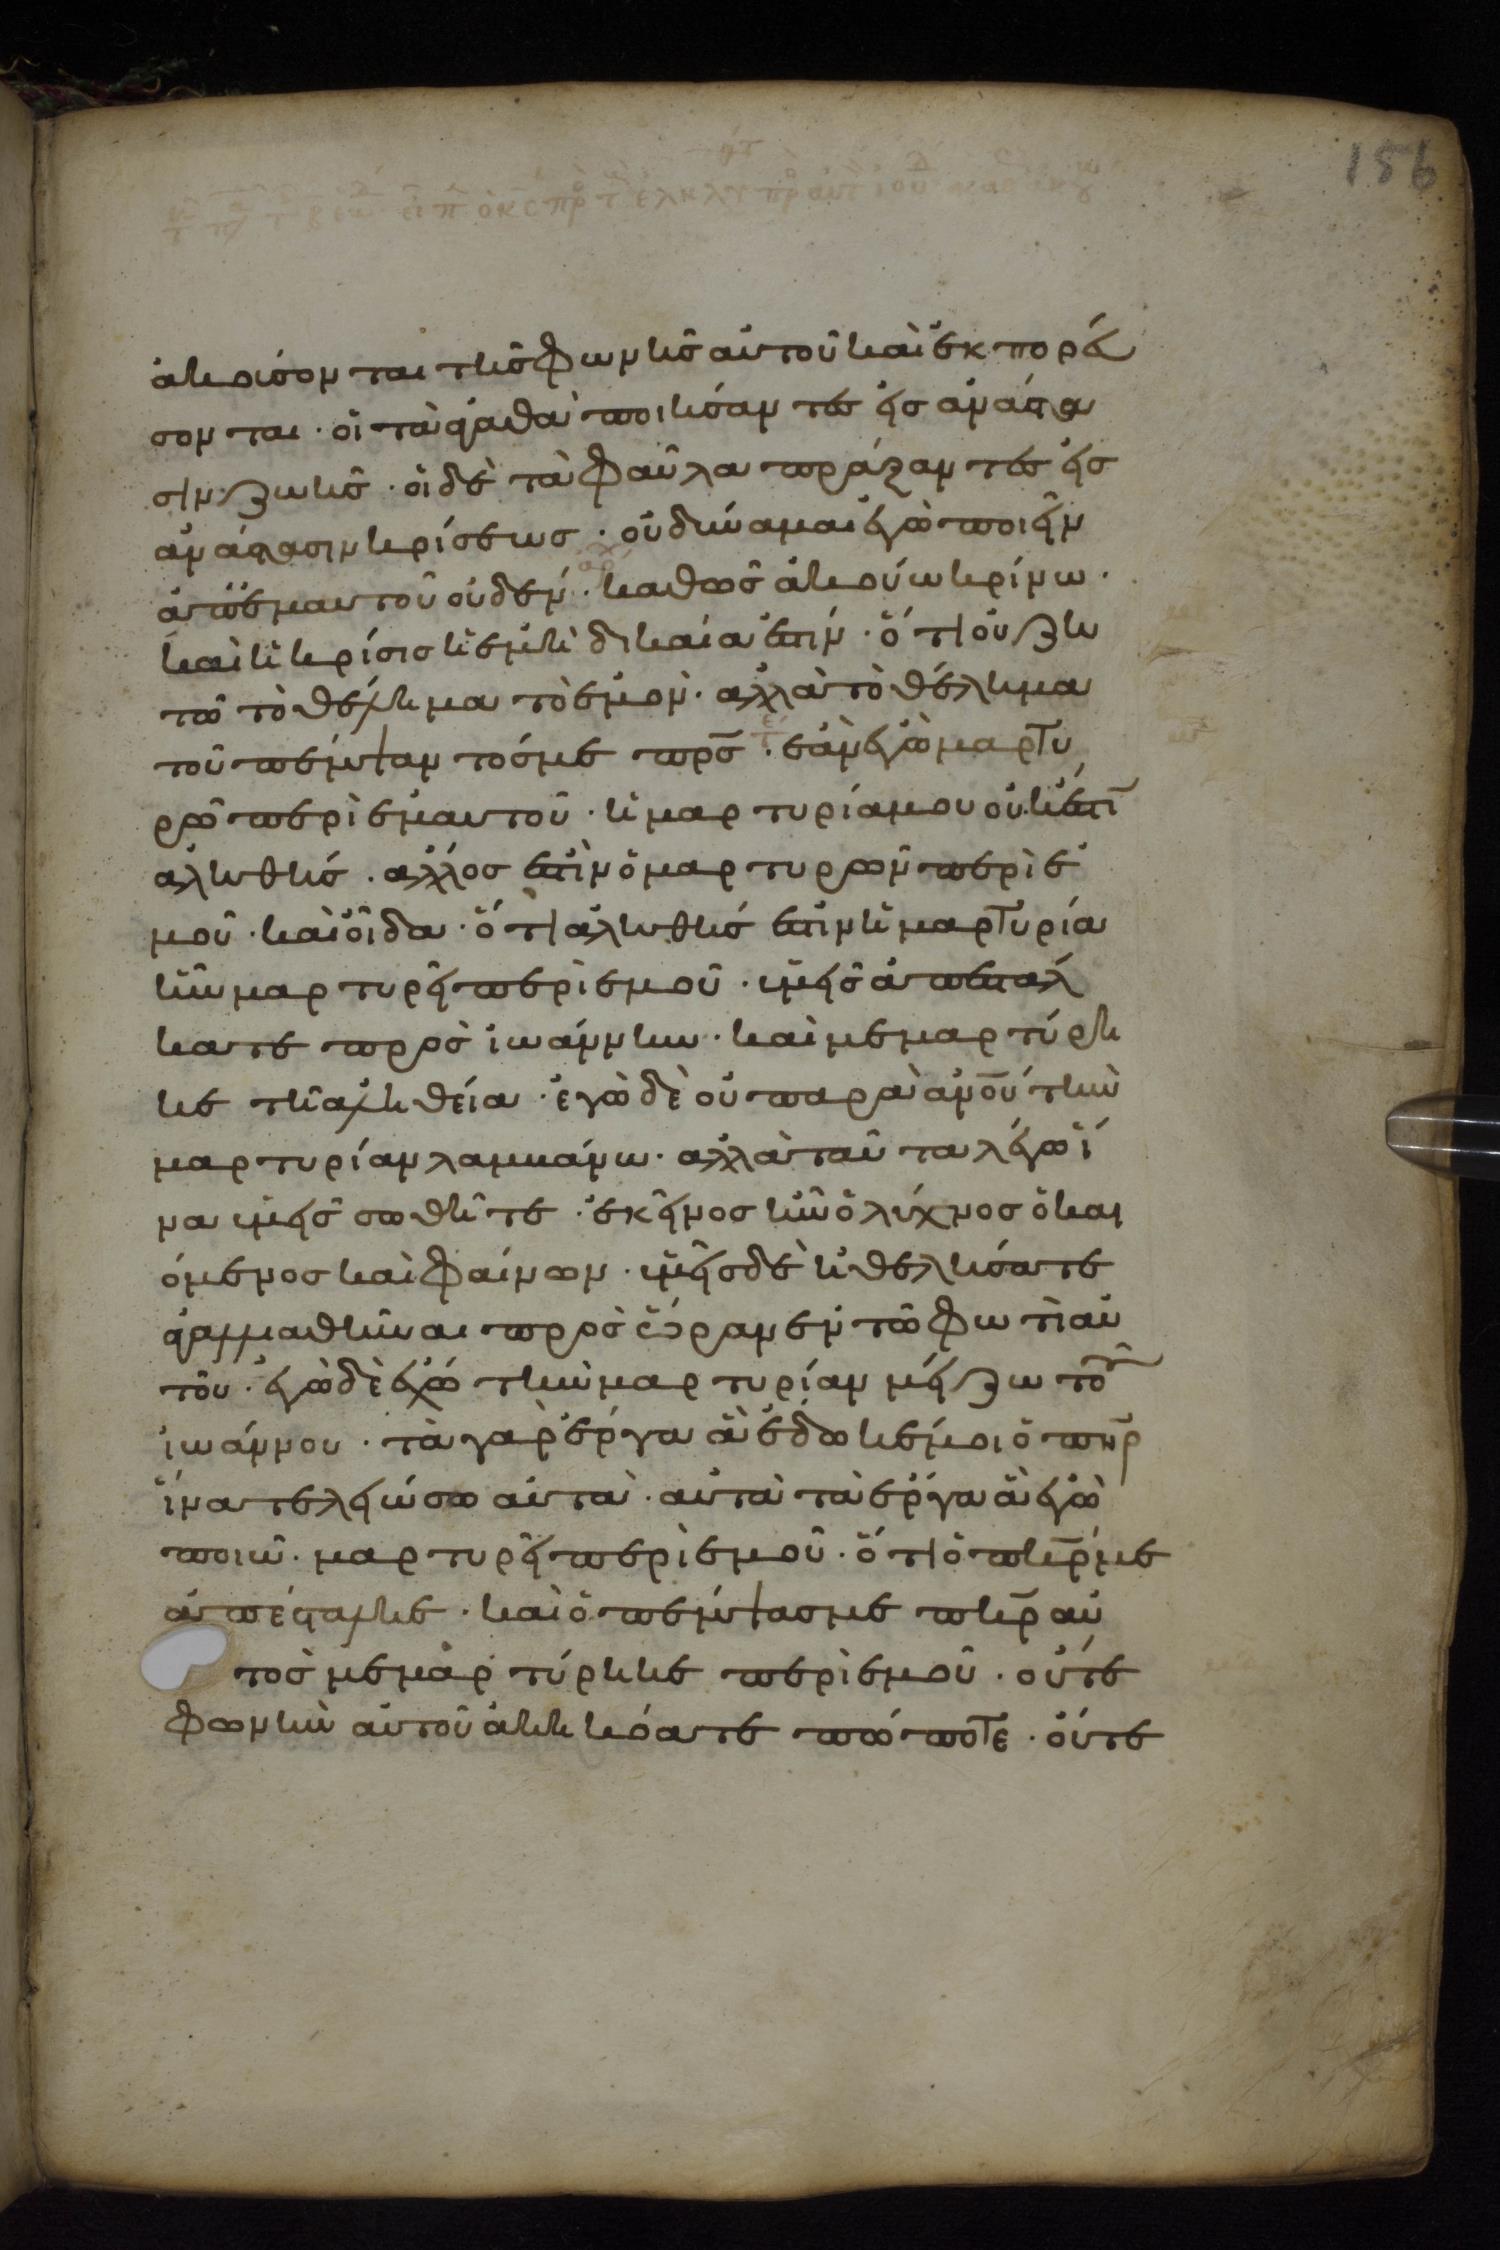 156
ἀκούσονται τῆς φωνῆς αὐτοῦ καὶ ἐκπορεύ
σονται · οἱ τὰ ἀγαθὰ ποιήσαντες εἰς ἀνάστα
σιν ζωῆς · οἱ δὲ τὰ φαῦλα πράξαντες εἰς
ἀνάστασιν κρίσεως · οὐ δύναμαι ἐγὼ ποιεῖν
ἀπ' ἐμαυτοῦ οὐδέν · καθὼς ἀκούω κρίνω ·
καὶ ἡ κρίσις ἡ ἐμὴ δικαία ἐστίν · ὅτι οὐ ζη
τῶ τὸ θέλημα τὸ ἐμὸν · ἀλλὰ τὸ θέλημα
τοῦ πέμψαντός με πρς · ἐὰν ἐγὼ μαρτυ
ρῶ περὶ ἐμαυτοῦ · ἡ μαρτυρία μου οὐκ ἔστι
ἀληθής · ἄλλος ἐστὶν ὁ μαρτυρῶν περὶ ἐ
μοῦ · καὶ οἶδα · ὅτι ἀληθής ἐστιν ἡ μαρτυρία
ἣν μαρτυρεῖ περὶ ἐμοῦ · ὑμεῖς ἀπεστάλ
κατε πρὸς ἰωάννην · καὶ μεμαρτύρη
κε τῇ ἀληθεία · ἐγὼ δὲ οὐ παρὰ ἀνου τὴν
μαρτυρίαν λαμβάνω · ἀλλὰ ταῦτα λέγω ἵ
να ὑμεῖς σωθῆτε · ἐκεῖνος ἦν ὁ λύχνος ὁ και
όμενος καὶ φαίνων · ὑμεῖς δὲ ἠθελήσατε
ἀγαλλιαθῆναι πρὸς ὥραν ἐν τῶ φωτὶ αὐ
τοῦ · ἐγὼ δὲ ἔχω τὴν μαρτυρίαν μείζω τοῦ
ἰωάννου · τὰ γὰρ ἔργα ἃ ἔδωκέ μοι ὁ πηρ
ἵνα τελειώσω αὐτὰ · αὐτὰ τὰ ἔργα ἃ ἐγὼ
ποιῶ · μαρτυρεῖ περὶ ἐμοῦ · ὅτι ὁ πηρ με
ἀπέσταλκε · καὶ ὁ πέμψας με πηρ αὐ
τὸς μεμαρτύρηκε περὶ ἐμοῦ · οὔτε
φωνὴν αὐτοῦ ἀκηκόατε πώποτε · οὔτε